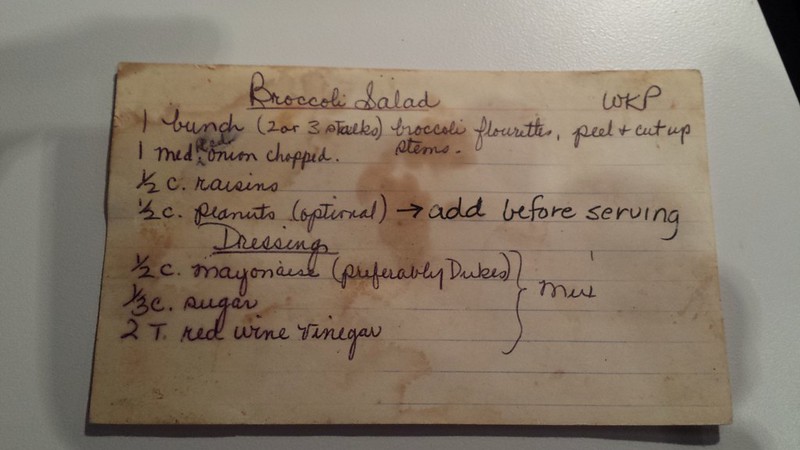 Broccoli Salad WKP
1 bunch (2 or 3 stalks) broccoli flourettes, peel + cut up
stems.
1 med. Red onion chopped.
1/2 c. raisins
1/2 c. peanuts (optional) → add before serving
Dressing
1/2 c. mayonaise (preferably Dukes)
1/3 c. sugar
2 T. red wine vinegar
} Mix